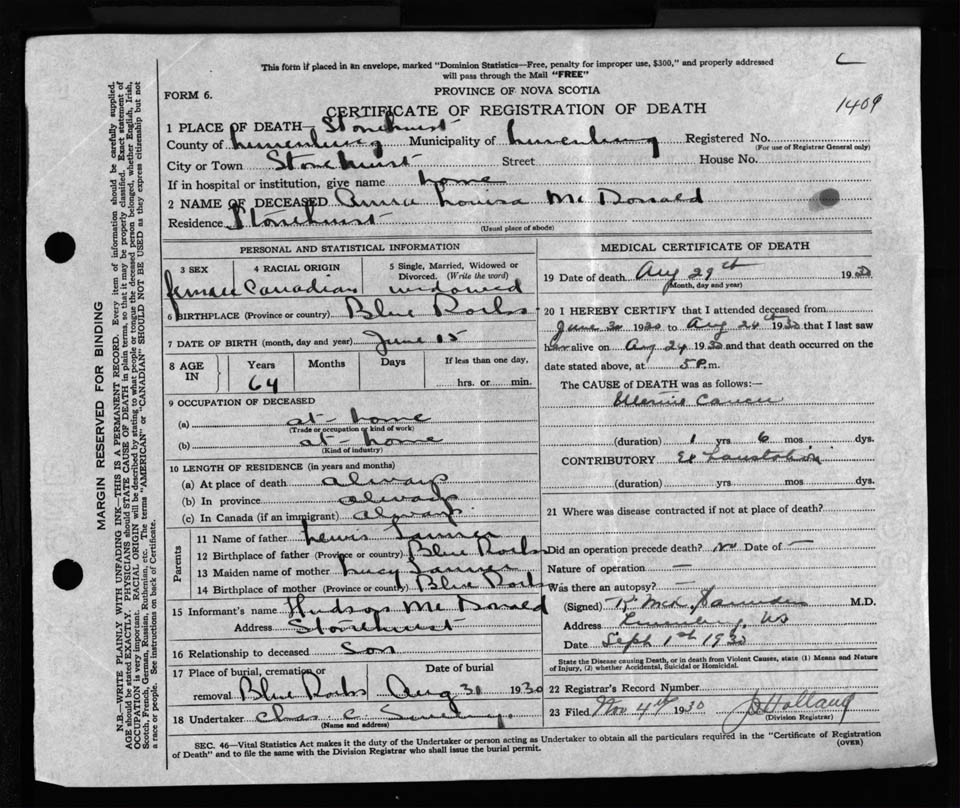 This form if placed in an envelope, marked "Dominion Statistics—Free, penalty for improper use, $300," and properly addressed
will pass through the Mail "FREE"
PROVINCE OF NOVA SCOTIA
FORM 6.
1409
CERTIFICATE OF REGISTRATION OF DEATH
1 PLACE OF DEATH— Stonehurst
County of Lunenburg Municipality of Lunenburg Registered No.
(For use of Registrar General only)
City or Town Stonehurst Street House No.
If in hospital or institution, give name home
2 NAME OF DECEASED Annie Louisa McDonald
Residence Stonehurst
(Usual place of abode)
PERSONAL AND STATISTICAL INFORMATION
3 SEX 4 RACIAL ORIGIN 5 Single, Married, Widowed or Divorced. (Write the word)
female Canadian widowed
6 BIRTHPLACE (Province or country) Blue Rocks
7 DATE OF BIRTH (month, day and year) June 15
8 AGE IN Years Months Days If less than one day,
64 hrs. or min.
9 OCCUPATION OF DECEASED
(a) at-home
(Trade or occupation or kind of work)
(b) at-home
(Kind of industry)
10 LENGTH OF RESIDENCE (in years and months)
(a) At place of death always
(b) In province always
(c) In Canada (if an immigrant) always
Parents
11 Name of father Lewis Tanner
12 Birthplace of father (Province or country) Blue Rocks
13 Maiden name of mother Lucy Tanner
14 Birthplace of mother (Province or country) Blue Rocks
15 Informant's name Hudson McDonald
Address Stonehurst
16 Relationship to deceased Son
17 Place of burial, cremation or removal Date of burial
Blue Rocks Aug 31 1930
18 Undertaker Chas C
(Name and address)
MEDICAL CERTIFICATE OF DEATH
19 Date of death Aug 29th 1930
(Month, day and year)
20 I HEREBY CERTIFY that I attended deceased from
June 30 1930 to Aug 24th 1930 that I last saw
her alive on Aug 24 1930 and that death occurred on the
date stated above, at 5 P.m.
The CAUSE of DEATH was as follows:—
Uterine Cancer
(duration) 1 yrs 6 mos. dys.
CONTRIBUTORY Exhaustion
(duration) yrs mos dys.
21 Where was disease contracted if not at place of death?
Did an operation precede death? No Date of —
Nature of operation —
Was there an autopsy? —
(Signed) Saunders M.D.
Address Lunenburg, NS
Date Sept 1st 1930
State the Disease causing Death, or in death from Violent Causes, state (1) Means and Nature
of Injury, (2) whether Accidental, Suicidal or Homicidal.
22 Registrar's Record Number
23 Filed Nov 4th 1930
(Division Registrar)
SEC. 46—Vital Statistics Act makes it the duty of the Undertaker or person acting as Undertaker to obtain all the particulars required in the "Certificate of Registration
of Death" and to file the same with the Division Registrar who shall issue the burial permit.
(OVER)
MARGIN RESERVED FOR BINDING
N.B.—WRITE PLAINLY WITH UNFADING INK—THIS IS A PERMANENT RECORD. Every item of information should be carefully supplied.
AGE should be stated EXACTLY. PHYSICIANS should STATE CAUSE OF DEATH in plain terms, so that it may be properly classified. Exact statement of
OCCUPATION is very important. RACIAL ORIGIN will be described by stating to what people or tongue the deceased person belonged, whether English, Irish,
Scotch, French, German, Russian, Ruthenian, etc. The terms "AMERICAN" or "CANADIAN" SHOULD NOT BE USED as they express citizenship but not
a race or people. See instructions on back of Certificate.